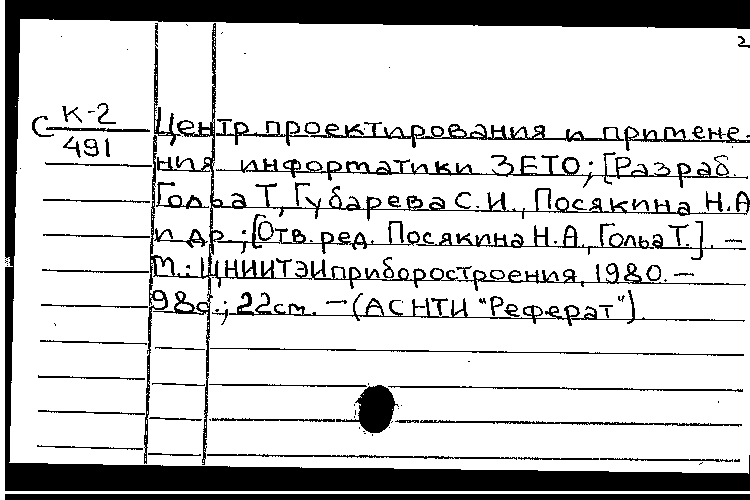 2
С К-2/491
Центр проектирования и примене-
ния информатики ЗЕТО; [Разраб.
Гольа Т, Губарева С.И., Посякина Н.А
и др.; [Отв. ред. Посякина Н.А, Гольа Т.]. —
М.: ЦНИИТЭИприборостроения, 1980. —
98с.; 22см. — (АСНТИ "Реферат").